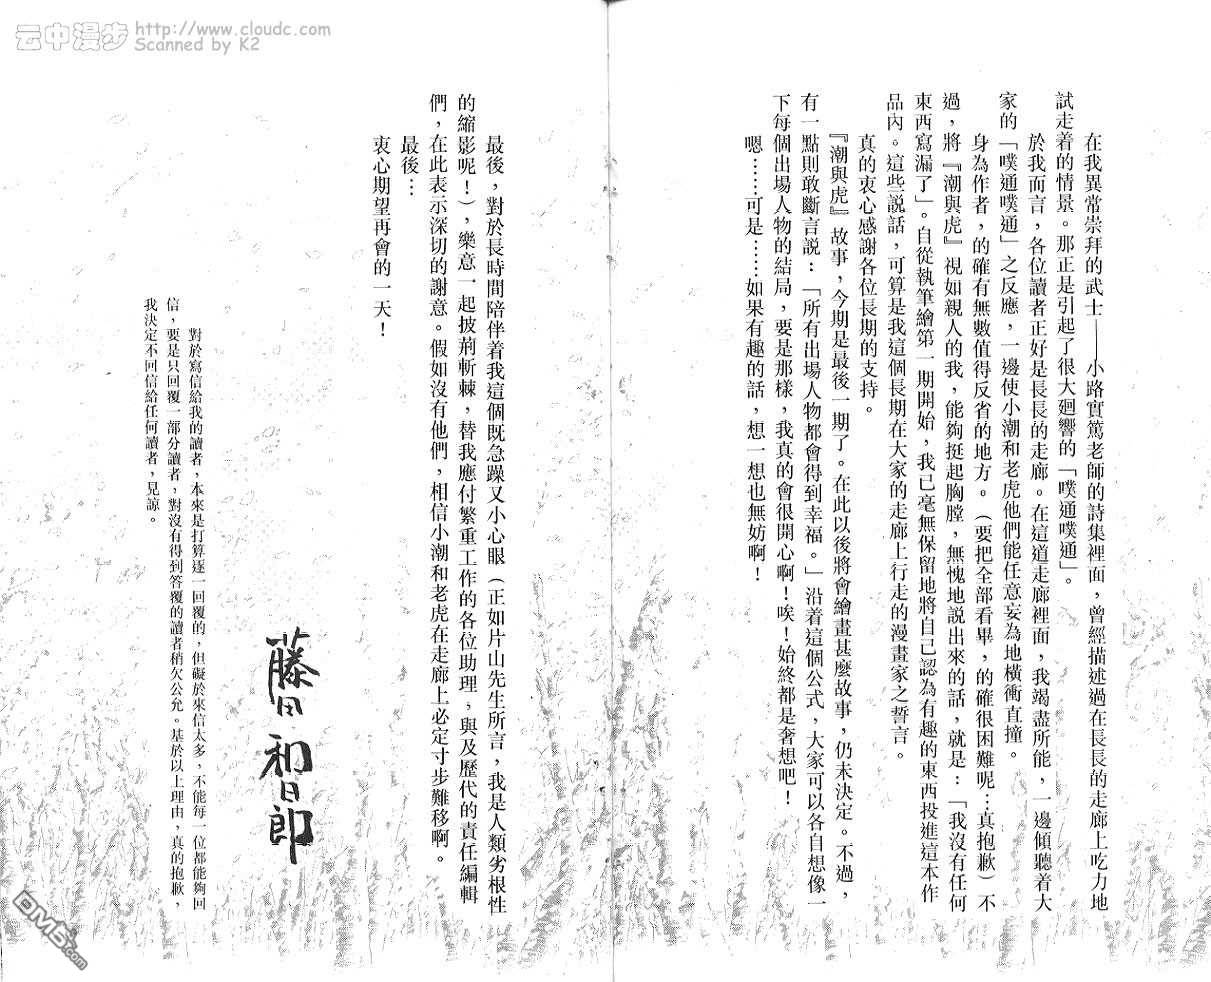 云中漫步 http://www.cloudc.com
Scanned by K2
在我異常崇拜的武士——小路實篤老師的詩集裡面，曾經描述過在長長的走廊上吃力地
試走着的情景。那正是引起了很大廻響的「噗通噗通」。
於我而言，各位讀者正好是長長的走廊。在這道走廊裡面，我竭盡所能，一邊傾聽着大
家的「噗通噗通」之反應，一邊使小潮和老虎他們能任意妄為地橫衝直撞。
身為作者，的確有無數值得反省的地方。（要把全部看畢，的確很困難呢…真抱歉）不
過，將『潮與虎』視如親人的我，能夠挺起胸膛，無愧地說出來的話，就是：「我沒有任何
東西寫漏了」。自從執筆繪第一期開始，我已毫無保留地將自己認為有趣的東西投進這本作
品內。這些說話，可算是我這個長期在大家的走廊上行走的漫畫家之誓言。
真的衷心感謝各位長期的支持。
『潮與虎』故事，今期是最後一期了。在此以後將會繪畫甚麼故事，仍未決定。不過，
有一點則敢斷言說：「所有出場人物都會得到幸福。」沿着這個公式，大家可以各自想像一
下每個出場人物的結局，要是那樣，我真的會很開心啊！唉！始終都是奢想吧！
嗯……可是……如果有趣的話，想一想也無妨啊！
最後，對於長時間陪伴着我這個既急躁又小心眼（正如片山先生所言，我是人類劣根性
的縮影呢！），樂意一起披荊斬棘，替我應付繁重工作的各位助理，與及歷代的責任編輯
們，在此表示深切的謝意。假如沒有他們，相信小潮和老虎在走廊上必定寸步難移啊。
最後…
衷心期望再會的一天！
對於寫信給我的讀者，本來是打算逐一回覆的，但礙於來信太多，不能每一位都能夠回
信，要是只回覆一部分讀者，對沒有得到答覆的讀者稍欠公允。基於以上理由，真的抱歉，
我決定不回信給任何讀者，見諒。
藤田和日郎